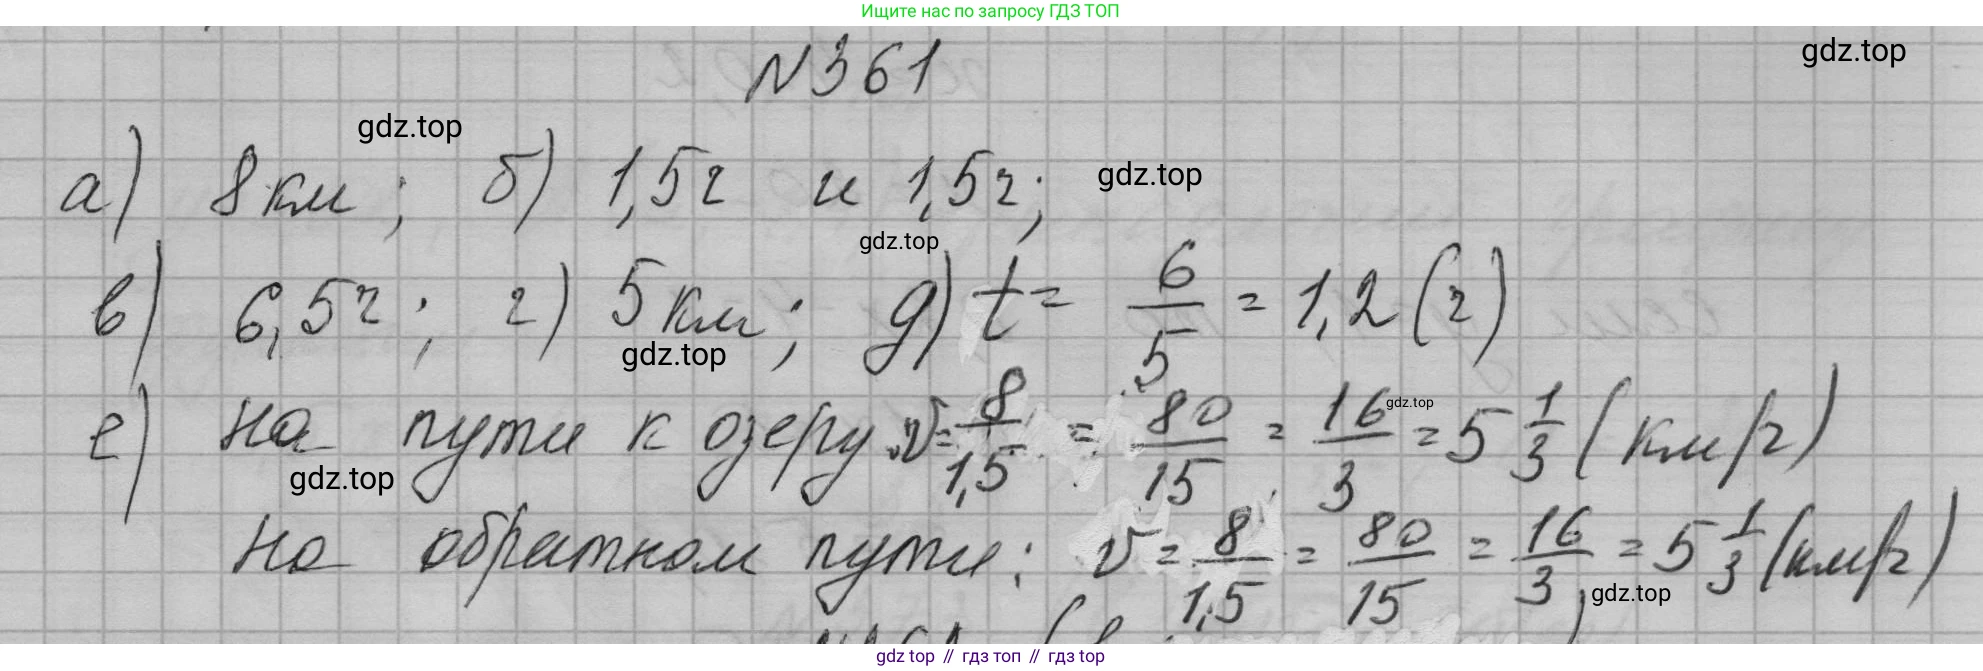 Ищите нас по запросу ГДЗ ТОП
N361
gdz.top
gdz.top
а) 8 км; б) 1,5 ч и 1,5 ч;
gdz.top
gdz.top
в) 6,5 ч; г) 5 км; д) t = 6/5 = 1,2 (ч)
gdz.top
е) на пути к озеру v = 8/1,5 = 80/15 = 16/3 = 5 1/3 (км/ч)
gdz.top
gdz.top
На обратном пути: v = 8/1,5 = 80/15 = 16/3 = 5 1/3 (км/ч)
gdz.top
gdz.top // гдз топ // гдз top